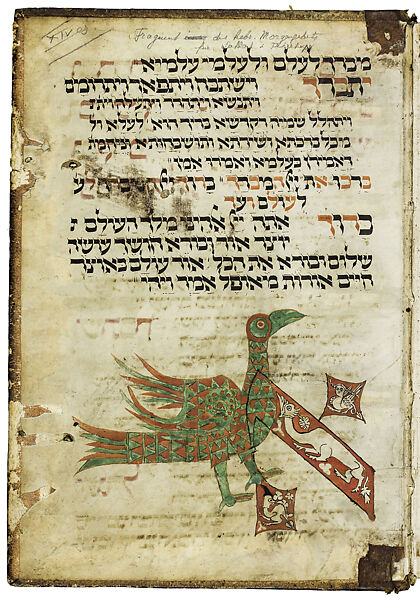 Fragment des hebr. Morgengebets
für
מברך לעלם ולעלמי עלמיא
יתברך וישתבח ויתפאר ויתרומם
ויתנשא ויתהדר ויתעלה
ויתהלל שמיה דקודשא בריך הוא לעלא ול
מכל ברכתא ושירתא תושבחתא
דאמירן בעלמא ואמרו אמן
ברכו את יי המברך ברוך יי המברך
לעולם ועד
ברוך אתה יי אלהינו מלך העולם י
יוצר אור ובורא חושך עושה
שלום ובורא את הכל אור עולם באוצר
חיים אורות מאופל אמר ויהי